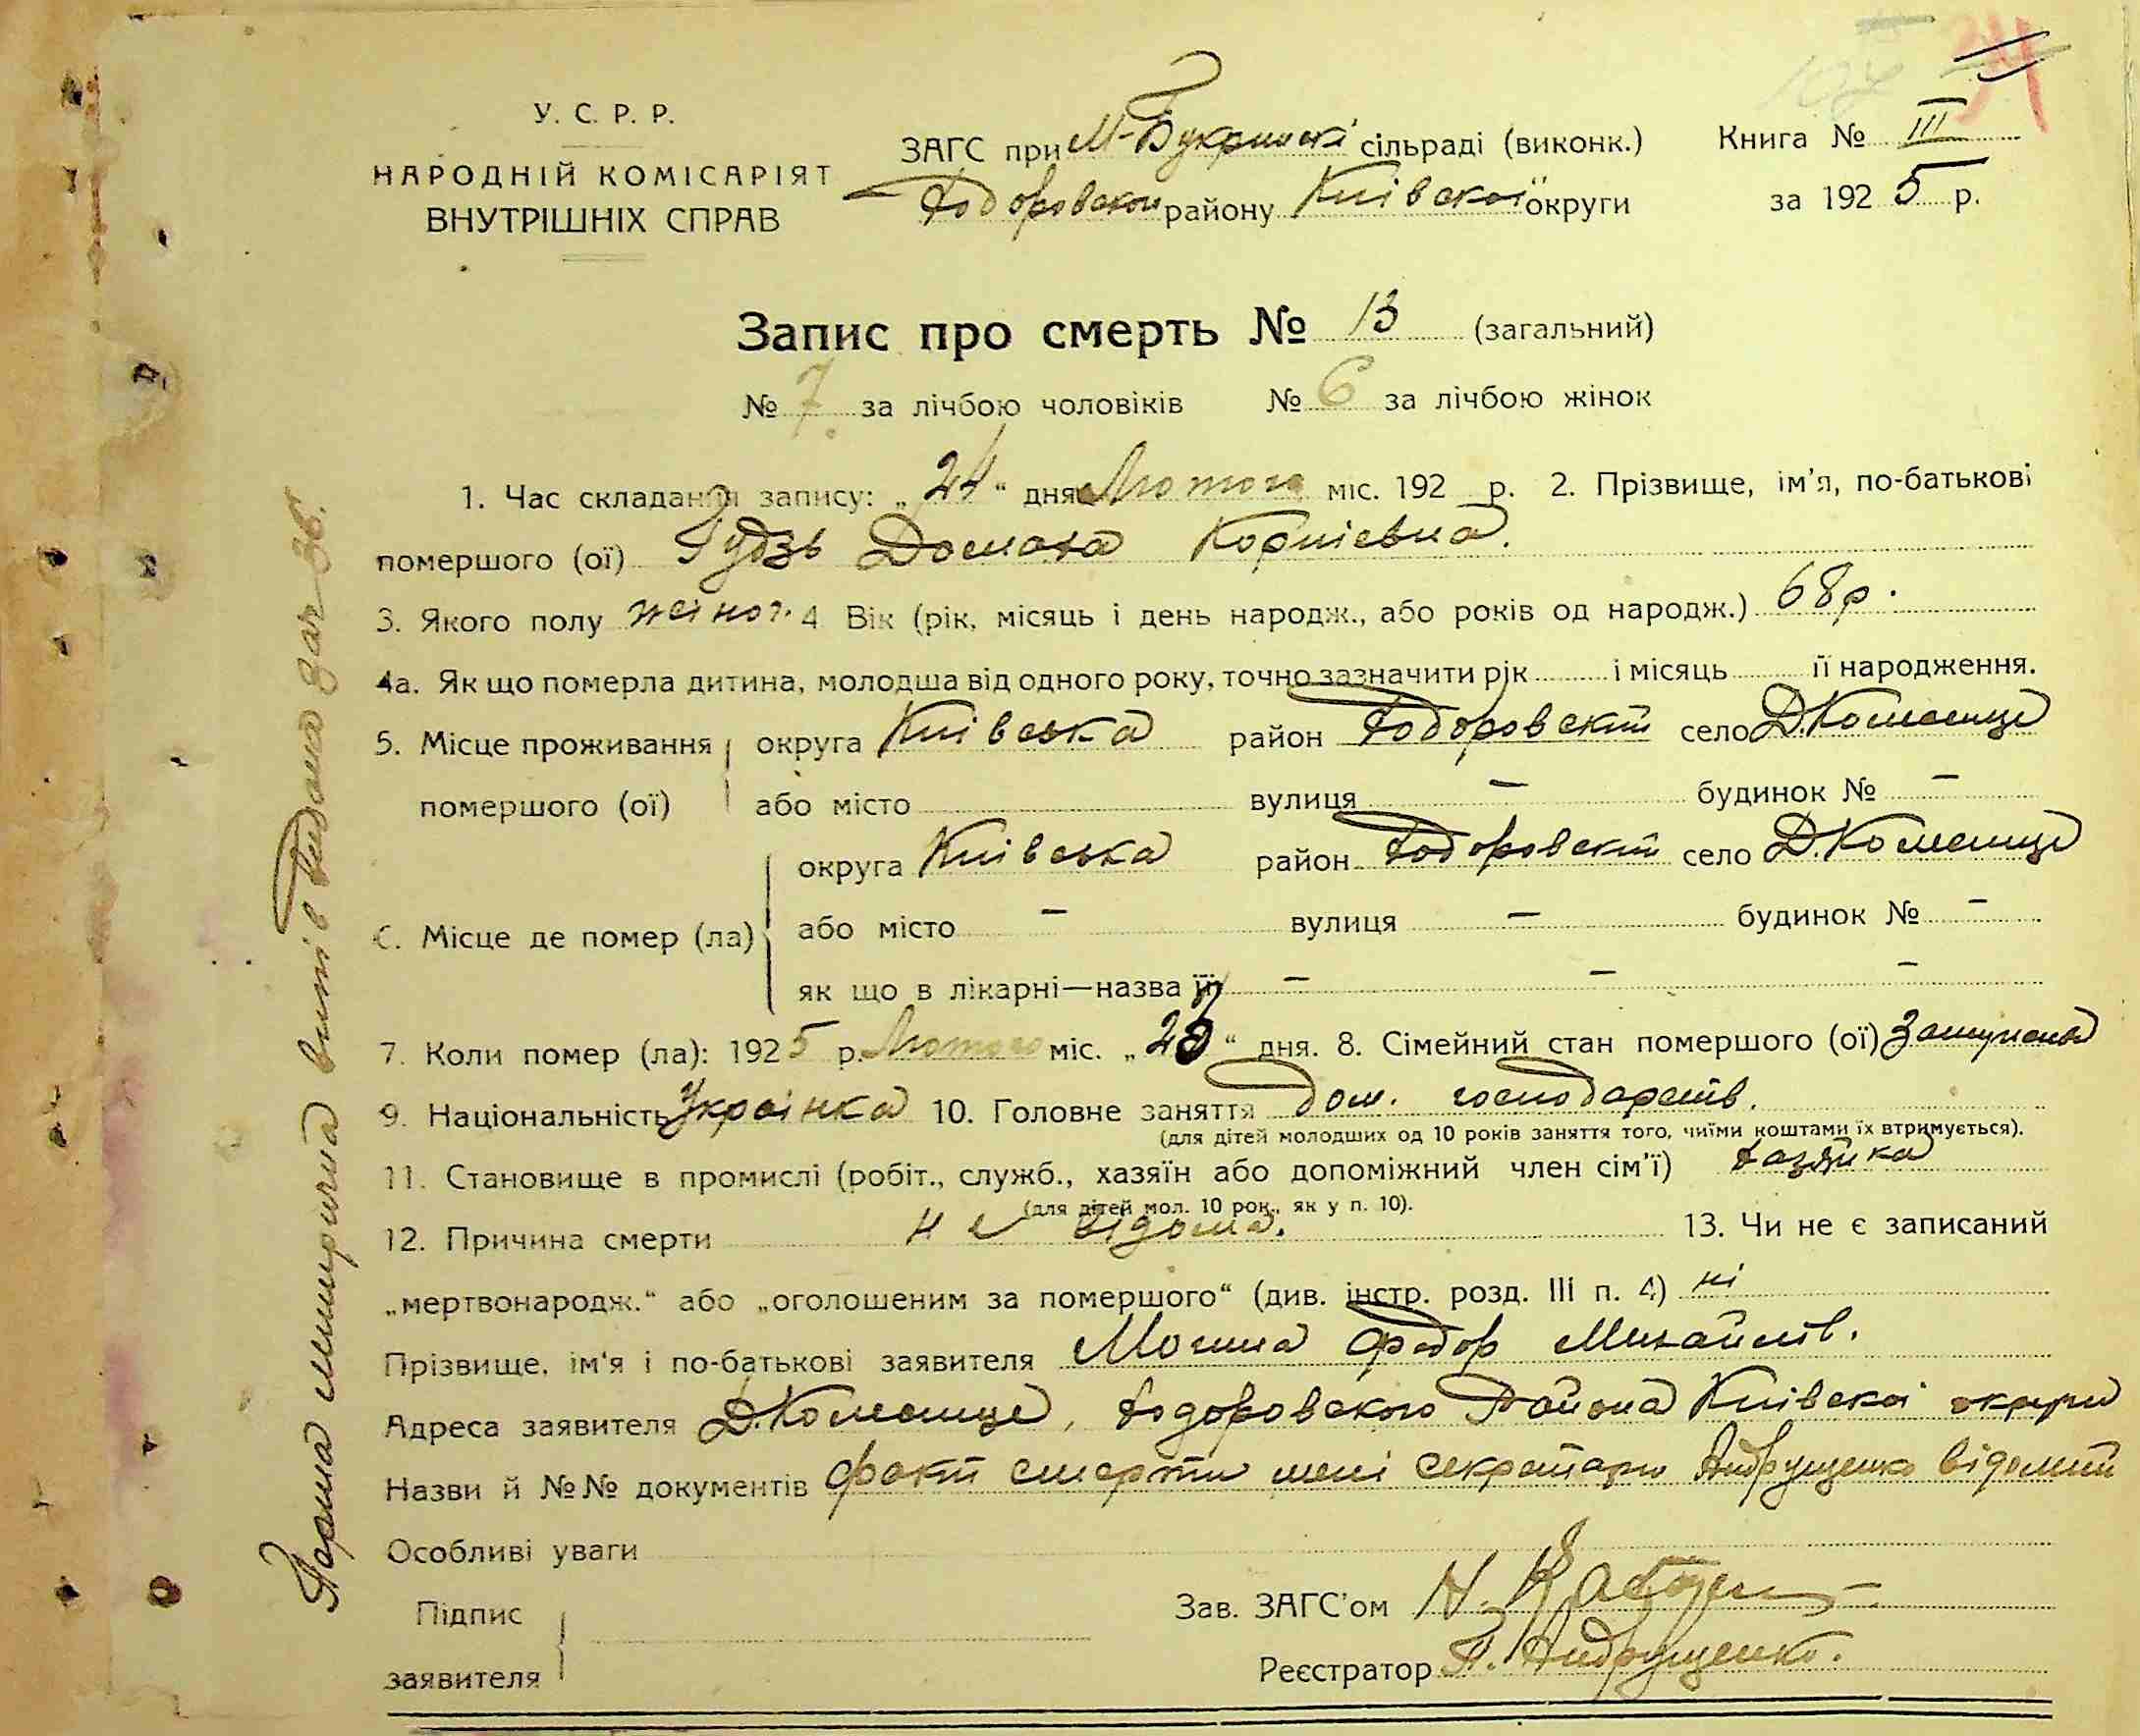 У. С. Р. Р.
НАРОДНІЙ КОМІСАРІЯТ
ВНУТРІШНІХ СПРАВ
ЗАГС при М-Букринскі сільраді (виконк.) Книга № III
Ходоровском району Київскої округи за 1925 р.
Запис про смерть № 13 (загальний)
№ 7 за лічбою чоловіків № 6 за лічбою жінок
1. Час складання запису: „24“ дня Лютого міс. 192 р. 2. Прізвище, ім'я, по-батькові
помершого (ої) Гудзь Домаха Корнієвна.
3. Якого полу жіноч. 4 Вік (рік, місяць і день народж., або років од народж.) 68 р.
4а. Як що померла дитина, молодша від одного року, точно зазначити рік і місяць її народження.
5. Місце проживання помершого (ої) округа Київська район Ходоровский село Д.Колесище
або місто вулиця — будинок № —
6. Місце де помер (ла) округа Київська район Ходоровский село Д.Колесище
або місто — вулиця — будинок № —
як що в лікарні—назва її — — —
7. Коли помер (ла): 1925 р. Лютого міс. „23“ дня. 8. Сімейний стан помершого (ої) Замужня
9. Національність Українка 10. Головне заняття дом. господарств.
(для дітей молодших од 10 років заняття того, чиїми коштами їх втримується).
11. Становище в промислі (робіт., служб., хазяїн або допоміжний член сім'ї) хазяйка
(для дітей мол. 10 рок., як у п. 10).
12. Причина смерти не відома. 13. Чи не є записаний
„мертвонародж.“ або „оголошеним за помершого“ (див. інстр. розд. III п. 4) ні
Прізвище, ім'я і по-батькові заявителя Федор Михайлів.
Адреса заявителя Д.Колесище, Ходоровского Района Київскоі округи
Назви й №№ документів факт смерти мені секретарю Андрущенко відомий
Особливі уваги
Підпис
заявителя
Зав. ЗАГС'ом
Реєстратор П. Андрущенко.